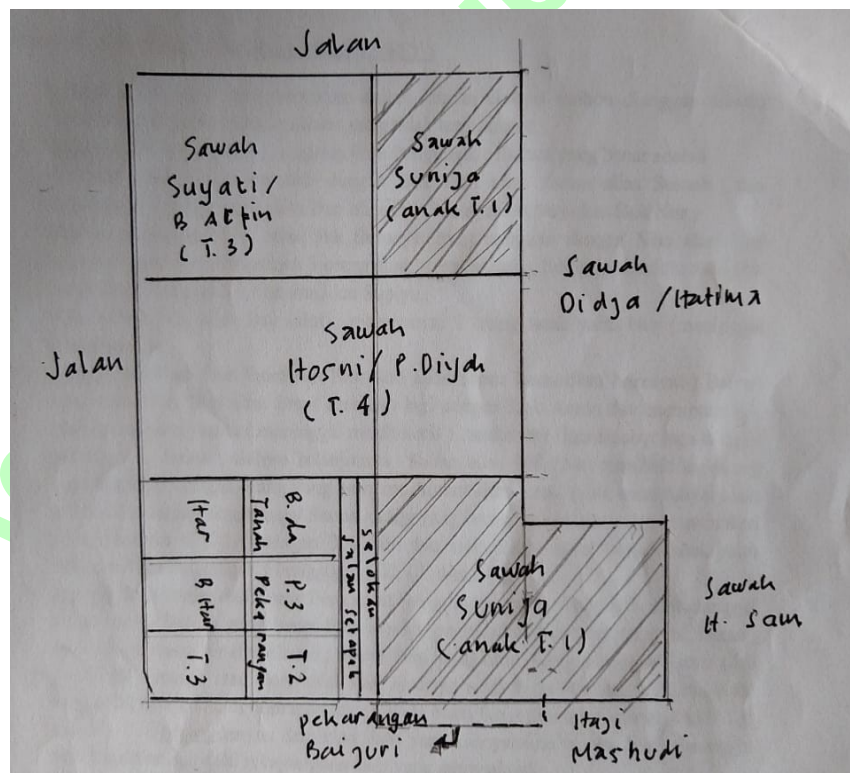 Jalan
Sawah
Suyati /
B Atpin
( T. 3 )
Sawah
Sunija
(anak T. 1)
Sawah
Didja / Hatima
Jalan
Sawah
Hosni / P. Diyah
( T. 4 )
Har
B. Har
T. 3
Tanah Pekarangan
P. 3
T. 2
Selokan
Jalan setapak
Sawah
Sunija
(anak T. 1)
Sawah
H. Sam
pekarangan
Baijuri
Haji
Mashudi